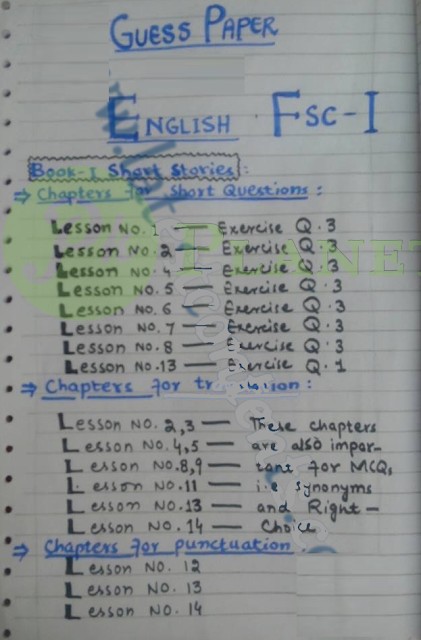 GUESS PAPER
ENGLISH FSC-I
Book-I Short Stories:
⇒ Chapters for Short Questions:
Lesson No.1 — Exercise Q.3
Lesson No.2 — Exercise Q.3
Lesson No.4 — Exercise Q.3
Lesson No.5 — Exercise Q.3
Lesson No.6 — Exercise Q.3
Lesson No.7 — Exercise Q.3
Lesson No.8 — Exercise Q.3
Lesson No.13 — Exercise Q.1
⇒ Chapters for translation:
Lesson No. 2,3 — These chapters
Lesson No.4,5 — are also impor-
Lesson No.8,9 — tant for MCQs
Lesson No.11 — i.e synonyms
Lesson No.13 — and Right-
Lesson No.14 — Choice
⇒ Chapters for punctuation.
Lesson No. 12
Lesson No. 13
Lesson No. 14
PLANET